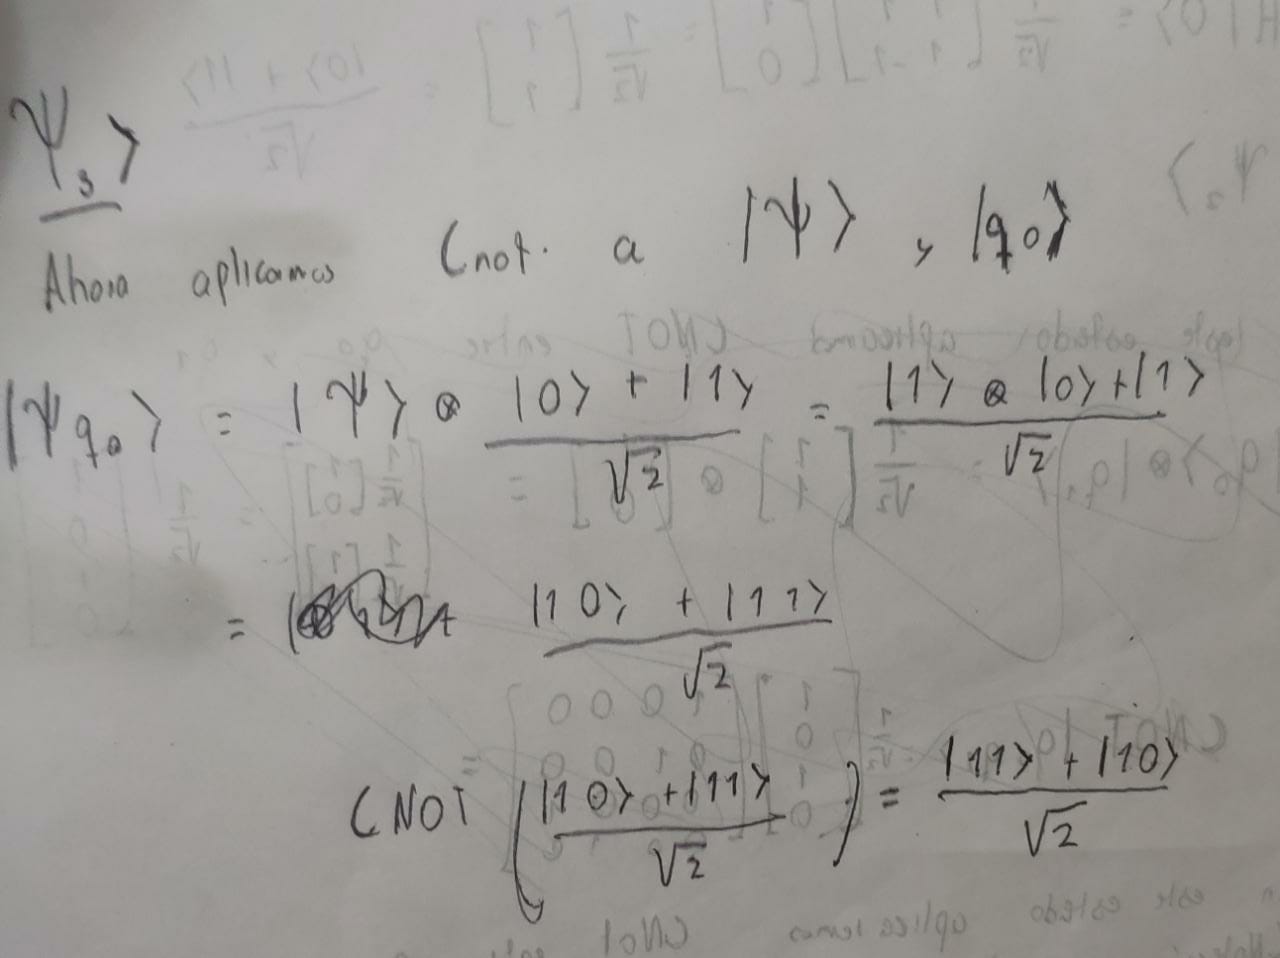 ψ₃⟩
Ahora aplicamos Cnot. a |ψ⟩ y |q₀⟩
|ψq₀⟩ = |ψ⟩ ⊗ (|0⟩ + |1⟩)/√2 = (|1⟩ ⊗ |0⟩+|1⟩)/√2
= (|10⟩ + |11⟩)/√2
CNOT ((|10⟩ + |11⟩)/√2) = (|11⟩ + |10⟩)/√2